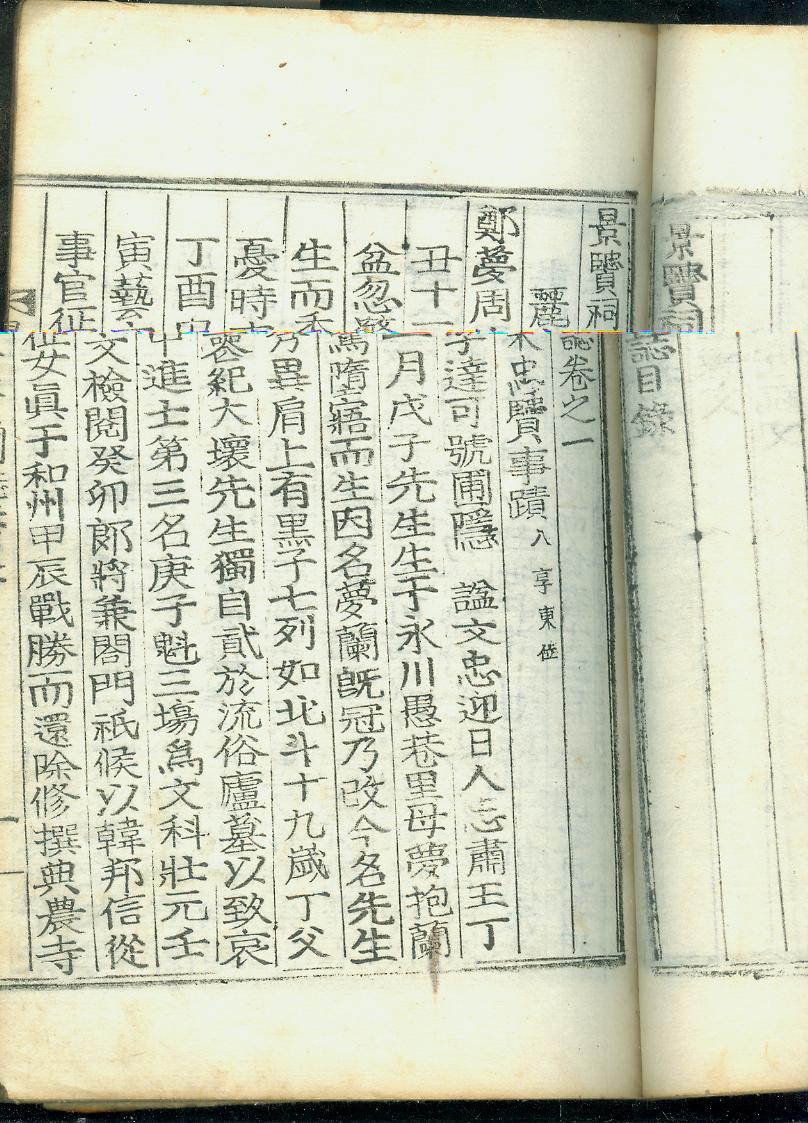 景贒祠誌目錄
景贒祠誌卷之一
麗末忠贒事蹟 八享東位
鄭夢周 字達可號圃隱 諡文忠迎日人忠肅王丁
丑十二月戊子先生生于永川愚巷里母夢抱蘭
盆忽驚墮寤而生因名夢蘭旣冠乃改今名先生
生而秀異肩上有黑子七列如北斗十九歲丁父
憂時喪紀大壞先生獨自貳於流俗廬墓以致哀
丁酉中進士第三名庚子魁三塲爲文科壯元壬
寅藝文檢閱癸卯郎將兼閤門祗候以韓邦信從
事官征女眞于和州甲辰戰勝而還除修撰典農寺